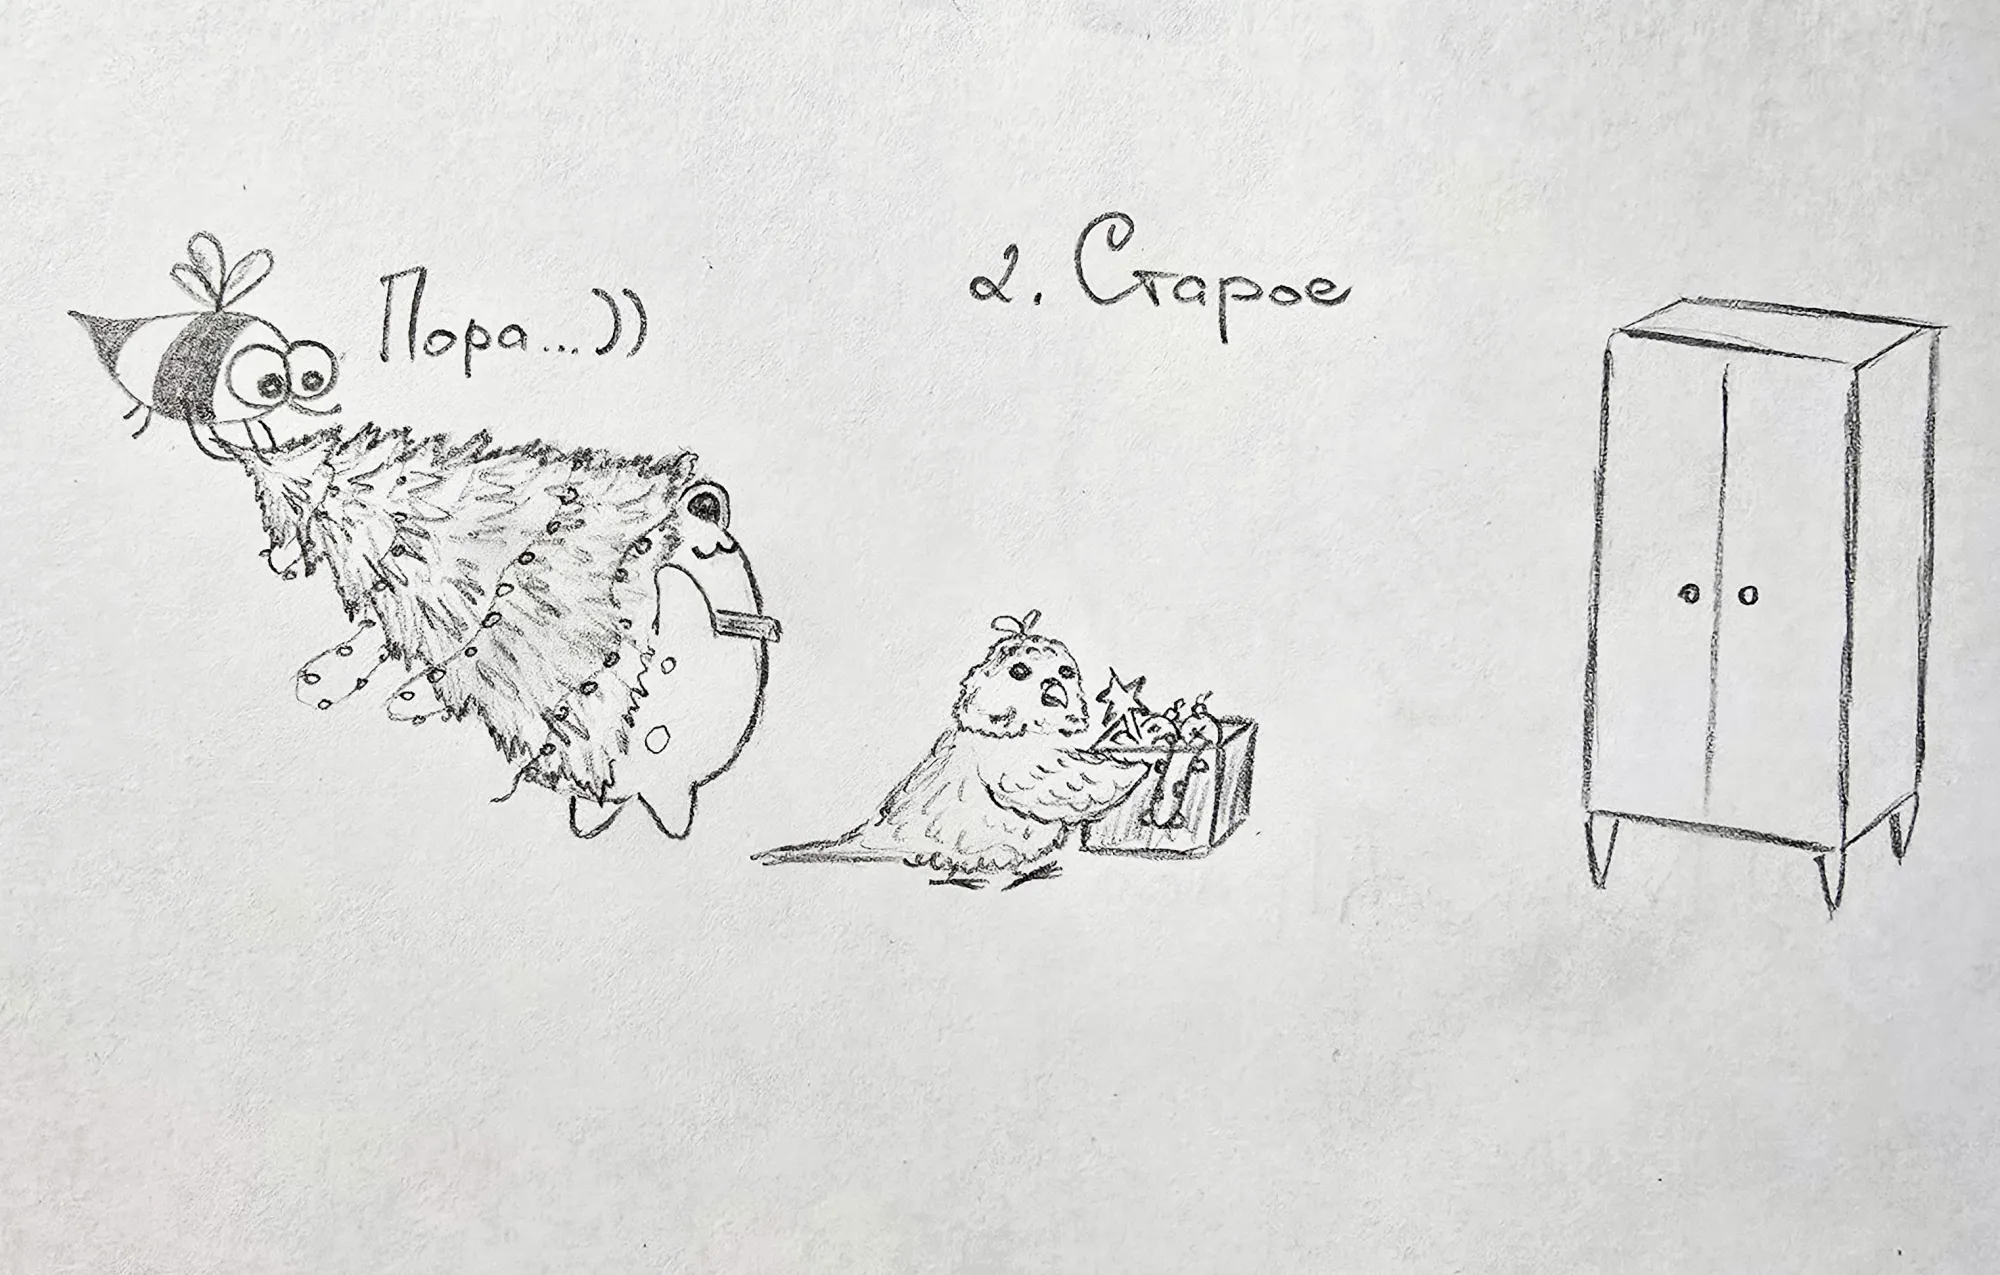 2. Старое
Пора...))